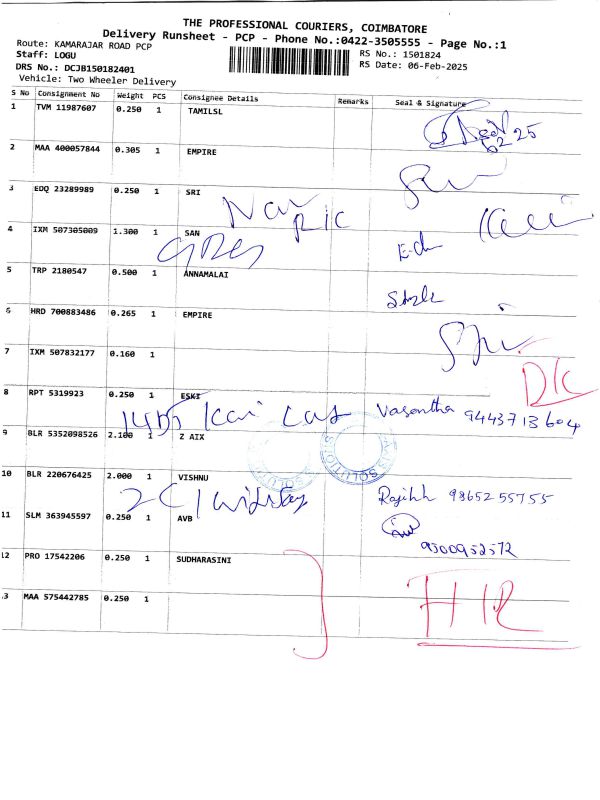 THE PROFESSIONAL COURIERS, COIMBATORE
Delivery Runsheet - PCP - Phone No.:0422-3505555 - Page No.:1
Route: KAMARAJAR ROAD PCP
RS No.: 1501824
Staff: LOGU
RS Date: 06-Feb-2025
DRS No.: DCJB150182401
Vehicle: Two Wheeler Delivery
S No Consignment No Weight PCS Consignee Details Remarks Seal & Signature
1 TVM 11987607 0.250 1 TAMILSL
25
2 MAA 400057844 0.305 1 EMPIRE
3 EDQ 23289989 0.250 1 SRI
4 IXM 507305009 1.300 1 SAN
5 TRP 2180547 0.500 1 ANNAMALAI
6 HRD 700883486 0.265 1 EMPIRE
7 IXM 507832177 0.160 1
8 RPT 5319923 0.250 1 ESKI
Vasantha 9443713604
9 BLR 5352098526 2.100 1 Z AIX
10 BLR 220676425 2.000 1 VISHNU
9865255755
11 SLM 363945597 0.250 1 AVB
9500952572
12 PRO 17542206 0.250 1 SUDHARASINI
13 MAA 575442785 0.250 1